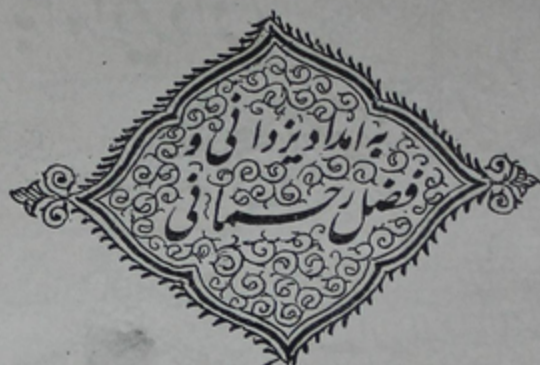 به امداد یزدانی و
فضل رحمانی